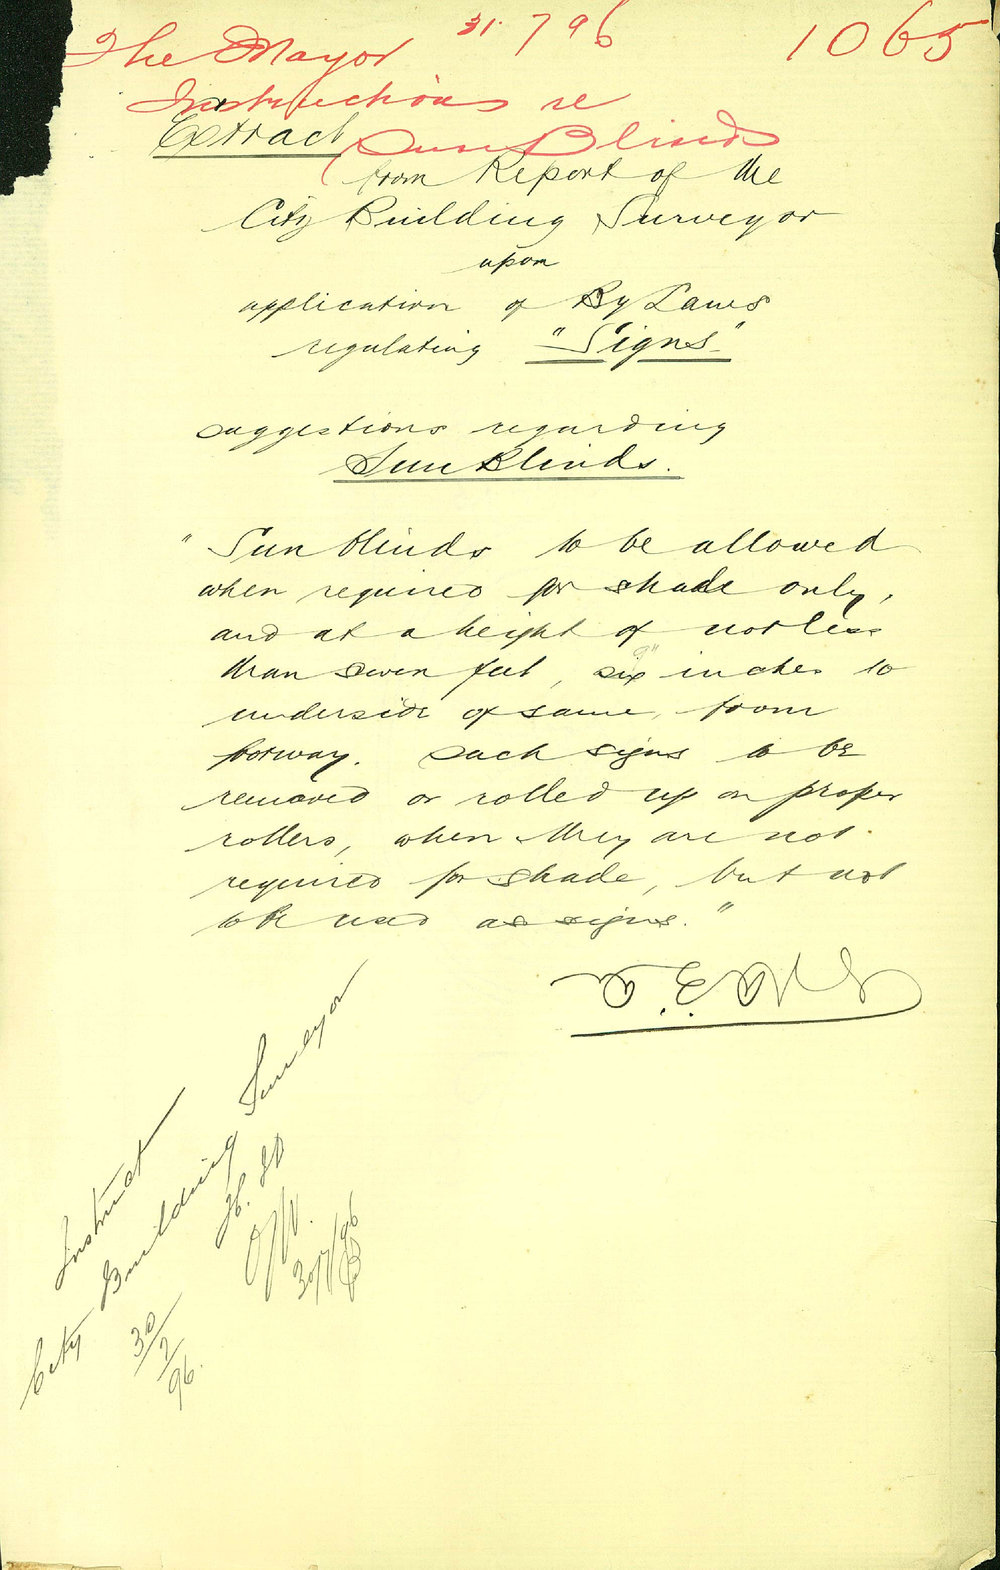 The Mayor 31. 7 96 1065
Instructions re
Sun Blinds
Extract
from Report of the
City Building Surveyor
upon
application of By Laws
regulating "Signs"
suggestions regarding
Sun Blinds.
" Sun blinds to be allowed
when required for shade only,
and at a height of not less
than seven feet, six inches to
underside of same, from
footway. Such signs to be
removed or rolled up on proper
rollers, when they are not
required for shade, but not
to be used as signs."
Instruct
City Building Surveyor
30/7/96.
30/7/96